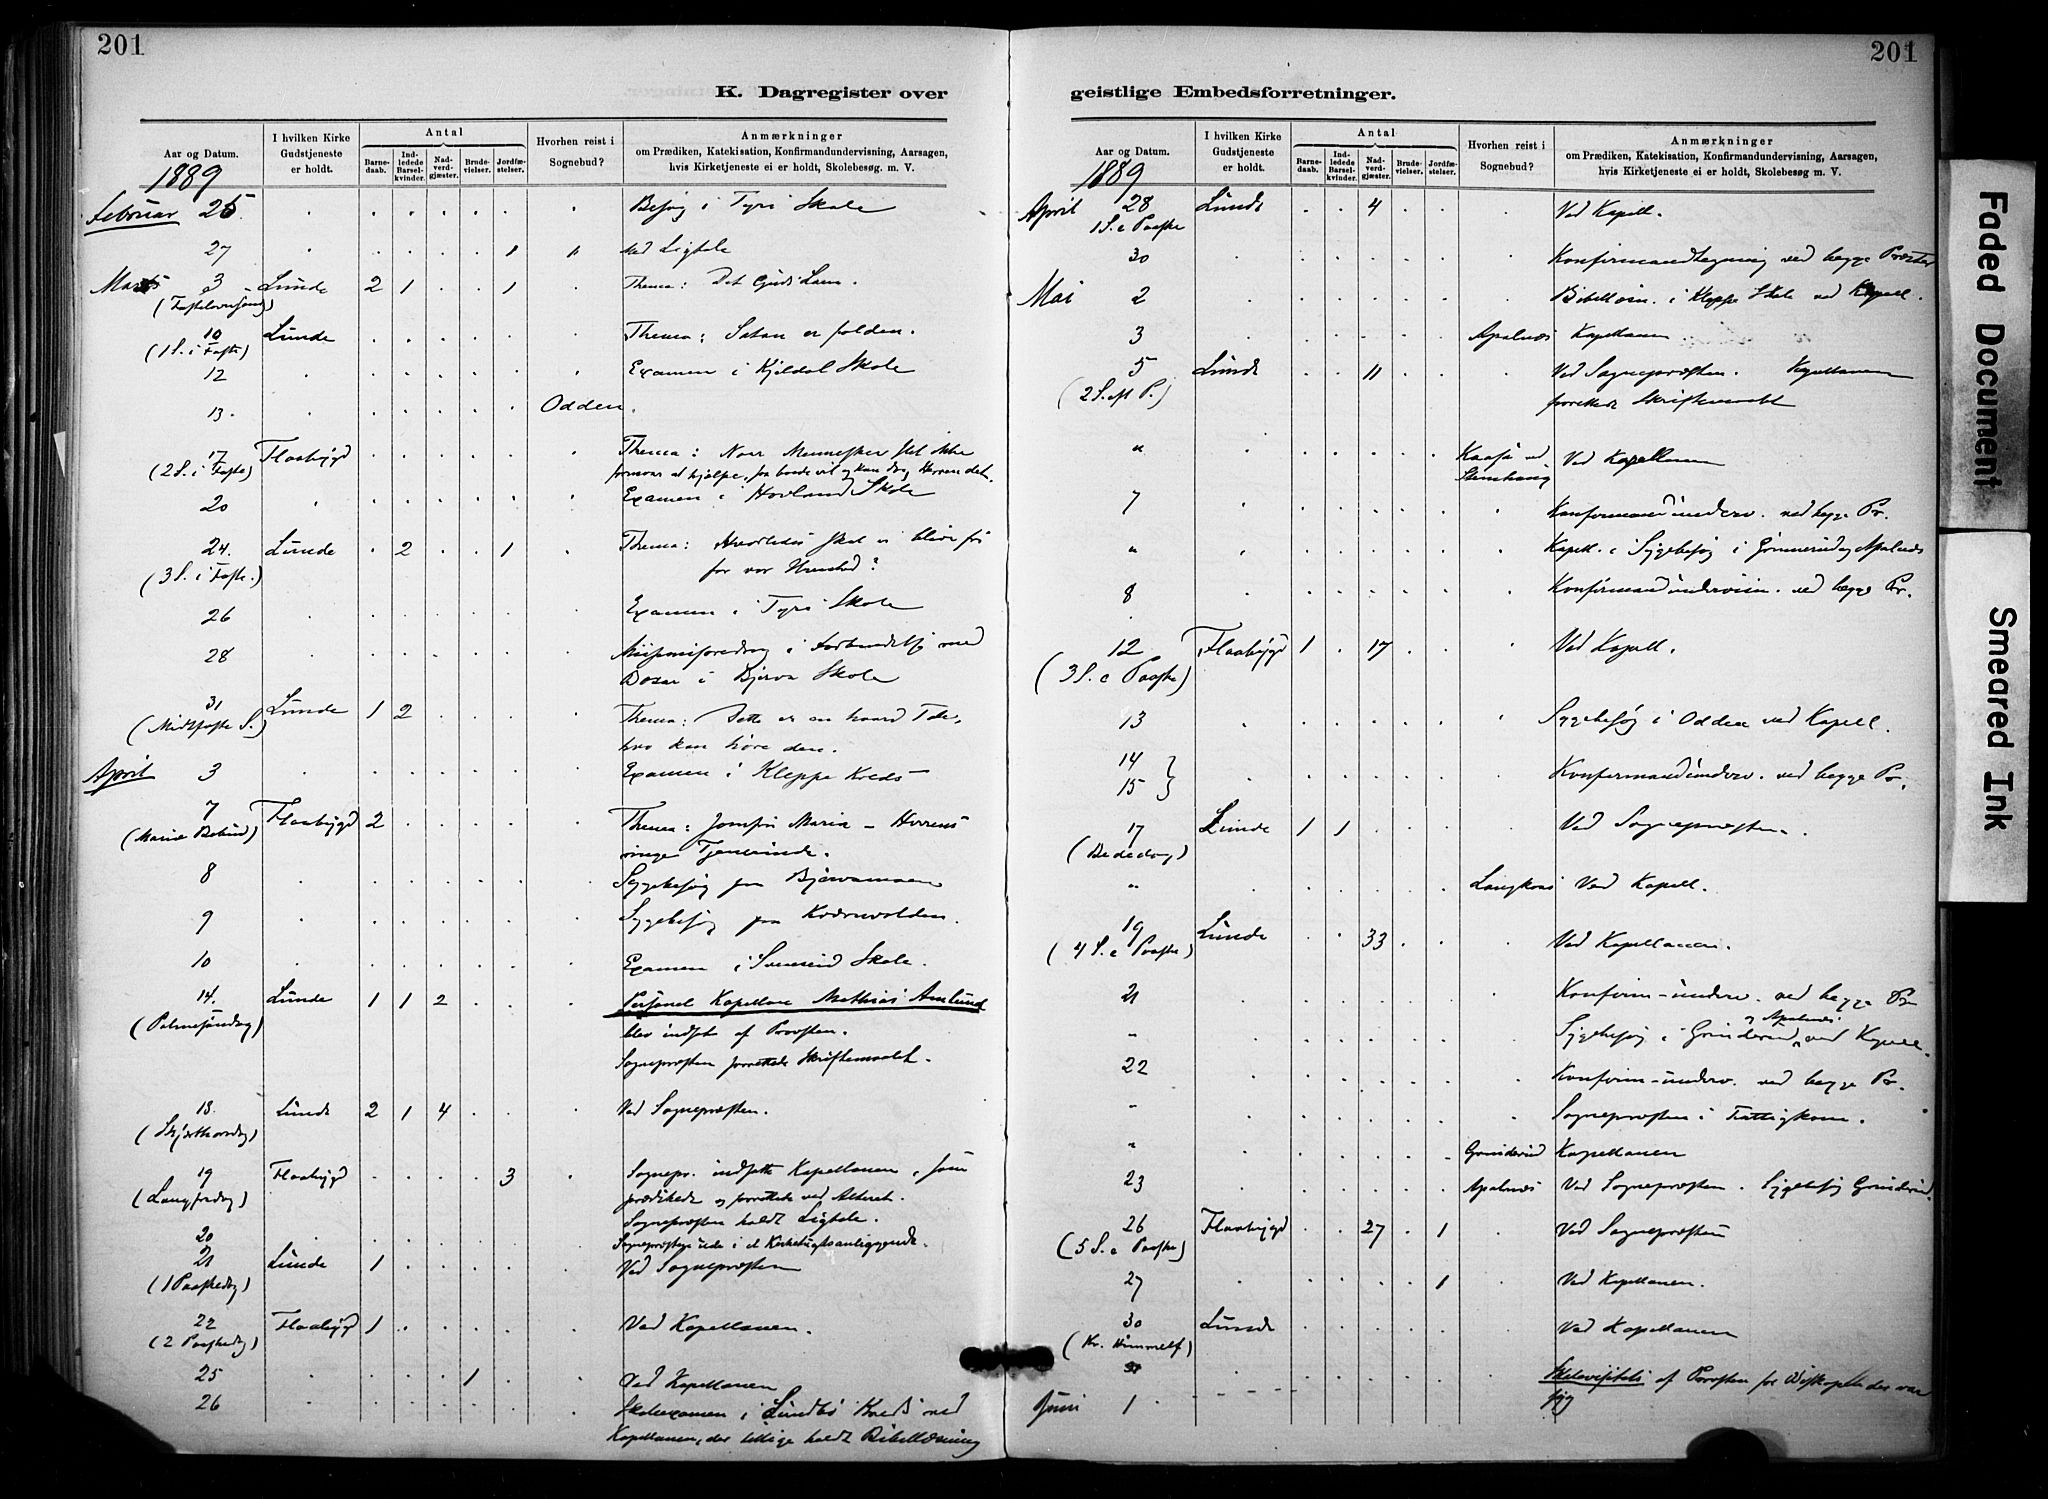 201
K. Dagregister over
Aar og Datum.
I hvilken Kirke Gudstjeneste er holdt.
Antal
Barnedaab.
Indledede Barselkvinder.
Nadverdgjæster.
Brudevielser.
Jordfæstelser.
Hvorhen reist i Sognebud?
Anmærkninger
om Prædiken, Katekisation, Konfirmandundervisning, Aarsagen, hvis Kirketjeneste ei er holdt, Skolebesøg. m. V.
1889
Februar 25. Besøg i Tyri Skole
27 1 Med Ligtale
Marts 3 Lunde 2 1 1 Thema: Det Guds Lam.
(Fastelavnssønd)
10 Lunde Thema: Satan er falden.
(1 S. i Faste)
12 Examen i Kjeldal Skole
13. Odden.
17 Flaabygd Thema: Naar Mennesker slet ikke
(2 S. i Faste) formaar at hjælpe, saa baade vil og kan dog Herren det.
20 Examen i Hovland Skole
24. Lunde 2 1 Thema: Hvorledes skal vi blive fri
(3 S. i Faste.) for vor
26 Examen i Tyri Skole
28 Missionsforedrag i
i Bjerva Skole
31 Lunde 1 2 Thema: Dette er en haard Tale,
(Midfaste S.) hvo kan høre den.
April 3 Examen i Kleppe Kreds
7 Flaabygd 2 Thema: Jomfru Maria – Herrens
(Mariæ Bebud) ringe Tjenerinde.
8 Sygebesøg paa Bjervamoen
9 Sygebesøg paa Kværnvolden.
10 Examen i Sveseid Skole.
14. Lunde 1 1 2 Personel Kapellan Mathias Amlund
(Palmesøndag) blev indsat af Provsten.
Sognepræsten forrettede Skriftemaalet.
18. Lunde 2 1 4 Ved Sognepræsten.
(Skjærthorsdag)
19 Flaabygd 3 Sognepr. indsatte Kapellanen, som
(Langfredag) prædikede og forrettede ved Alteret.
Sognepræsten holdt Ligtale.
20 Sognepræsten ude i et Kirketugtsanliggende.
21 Lunde 1 Ved Sognepræsten
(1 Paaskedag)
22 Flaabygd 1 Ved Kapellanen.
(2 Paaskedag)
25 1 Ved Kapellanen
26 Skoleexamen i Lundbø Kreds ved
Kapellanen, der tillige holdt Bibellæsning
201
geistlige Embedsforretninger.
Aar og Datum.
I hvilken Kirke Gudstjeneste er holdt.
Antal
Barnedaab.
Indledede Barselkvinder.
Nadverdgjæster.
Brudevielser.
Jordfæstelser.
Hvorhen reist i Sognebud?
Anmærkninger
om Prædiken, Katekisation, Konfirmandundervisning, Aarsagen, hvis Kirketjeneste ei er holdt, Skolebesøg m. V.
1889
April 28 Lunde 4 Ved Kapell.
1 S. e Paaske
30 Konfirmandtegning ved begge Præster
Mai 2 Bibellæsn. i Kleppe Skole ved Kapell.
3 Apalnæs Kapellanen
5 Lunde 11 Ved Sognepræsten. Kapellanen
(2 S. eft P.) forrettede Skriftemaalet
" Kaasa ved Stenshaug Ved Kapellanen
7 Konfirmandunderv. ved begge Pr.
" Kapell. i Sygebesøg i og Apalnæs
8 Konfirmandundervisn. ved begge Pr.
12 Flaabygd 1 17 Ved Kapell.
(3 S. e Paaske)
13 Sygebesøg i Odden ved Kapell.
14
15 } Konfirmandunderv. ved begge Pr.
17 Lunde 1 1 Ved Sognepræsten.
(Bededag)
" Langkaas Ved Kapell.
19 Lunde 33 Ved Kapellanen.
(4 S. e Paaske)
21 Konfirm-underv. ved begge Pr
" Sygebesøg i Grinderud og Apalnæs. ved Kapell.
22 Konfirm-underv. ved begge Pr.
" Sognepræsten i Fattigkom.
" Grinderud Kapellanen
23 Apalnæs Ved Sognepræsten. Sygebesøg Grinderud.
26 Flaabygd 27 1 Ved Sognepræsten
(5 S. e Paaske)
27 1 Ved Kapellanen.
30 Lunde Ved Kapellanen
(Kr. Himmelf)
Skolevisitats af Provsten for Biskopen der var
Juni 1 syg
Faded Document
Smeared Ink